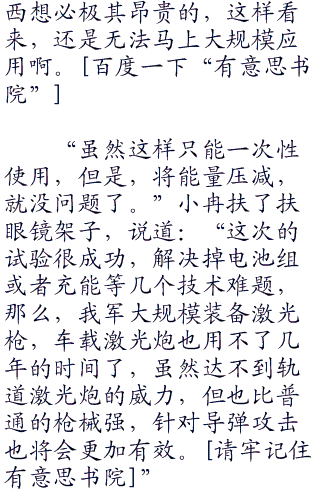 西想必极其昂贵的，这样看
来，还是无法马上大规模应
用啊。[百度一下“有意思书
院”]
“虽然这样只能一次性
使用，但是，将能量压减，
就没问题了。”小冉扶了扶
眼镜架子，说道：“这次的
试验很成功，解决掉电池组
或者充能等几个技术难题，
那么，我军大规模装备激光
枪，车载激光炮也用不了几
年的时间了，虽然达不到轨
道激光炮的威力，但也比普
通的枪械强，针对导弹攻击
也将会更加有效。[请牢记住
有意思书院]”